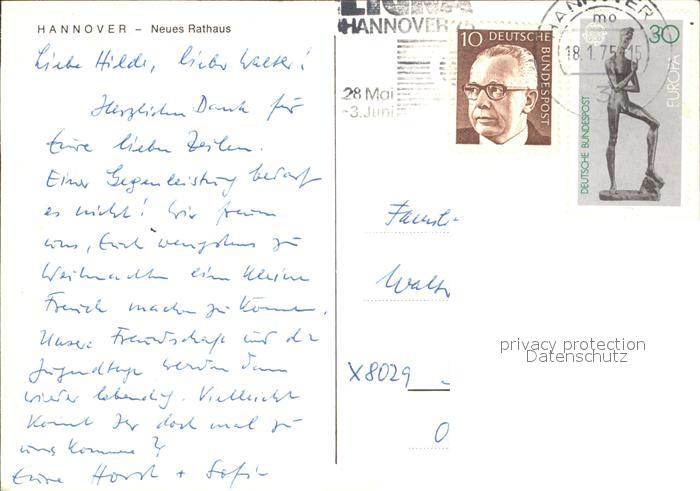 HANNOVER – Neues Rathaus
Liebe Hilde, lieber Walter!
Herzlichen Dank für
Eure lieben Zeilen.
Einer Gegenleistung bedarf
es nicht! Wir freuen
uns, Euch wenigstens zu
Weihnachten eine kleine
Freude machen zu können.
Unsere Freundschaft und die
Jugendtage werden dann
wieder lebendig. Vielleicht
könnt Ihr doch mal zu
uns kommen?
Eure Horst + Sofie
HANNOVER
28 Mai
-3. Juni
10 DEUTSCHE
BUNDESPOST
HANNOVER
mo
18.1.75-15
30
EUROPA
DEUTSCHE BUNDESPOST
Famili
Walt
X8029
O
privacy protection
Datenschutz